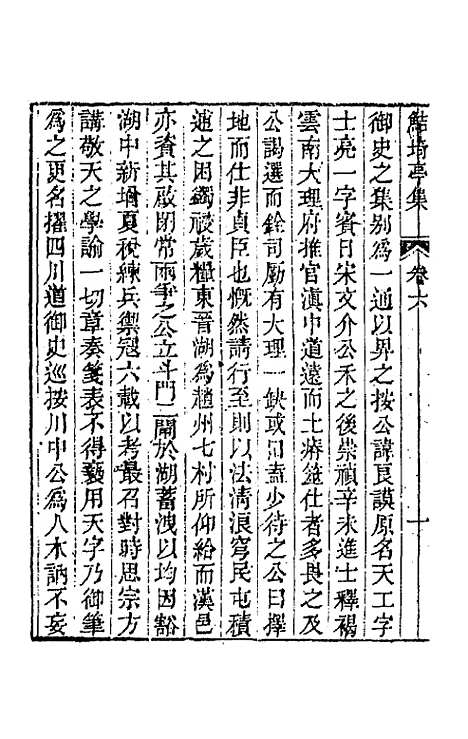 鮚埼亭集 卷六 一
御史之集别爲一通以畀之按公諱良謨原名天工字
士亮一字賓日宋文介公禾之後崇禎辛未進士釋褐
雲南大理府推官滇中道遠而土瘠筮仕者多畏之及
公謁選而銓司勵有大理一缺或曰盍少待之公曰擇
地而仕非貞臣也慨然請行至則以法清浪穹民屯積
逋之困蠲祲歲糧東晉湖爲趙州七村所仰給而漢邑
亦資其啟閉常兩爭之公立斗門二閘於湖蓄洩以均因豁
湖中新增夏稅練兵禦寇六載以考最召對時思宗方
講敬天之學諭一切章奏箋表不得褻用天字乃御筆
爲之更名擢四川道御史巡按川中公爲人木訥不妄